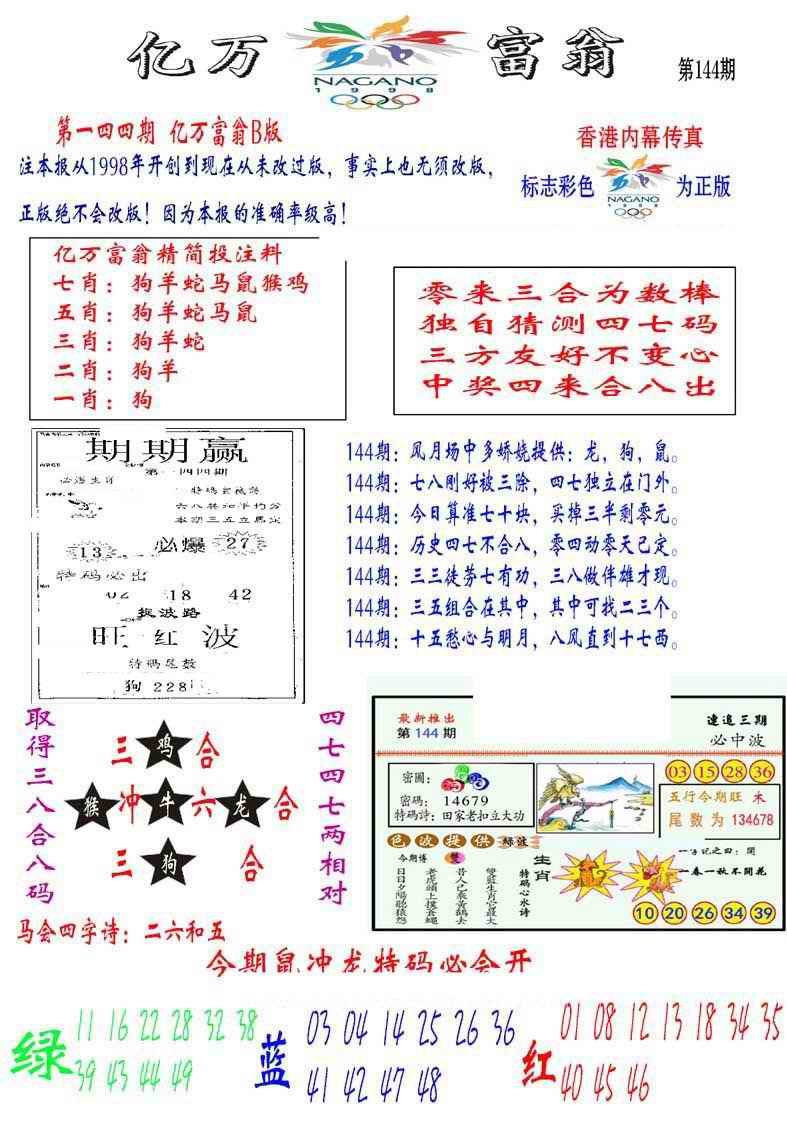 亿万 富翁
NAGANO
1998
第144期
第一四四期 亿万富翁B版
注本报从1998年开创到现在从未改过版，事实上也无须改版，
正版绝不会改版！因为本报的准确率级高！
香港内幕传真
标志彩色 为正版
NAGANO
亿万富翁精简投注料
七肖：狗羊蛇马鼠猴鸡
五肖：狗羊蛇马鼠
三肖：狗羊蛇
二肖：狗羊
一肖：狗
零来三合为数棒
独自猜测四七码
三方友好不变心
中奖四来合八出
期期赢
第一四四期
13 必爆 27
特码必出
02 18 42
捉波路
旺 红 波
狗 228
144期：风月场中多娇娆提供：龙，狗，鼠。
144期：七八刚好被三除，四七独立在门外。
144期：今日算准七十块，买掉三半剩零元。
144期：历史四七不合八，零四动零天已定。
144期：三三徒劳七有功，三八做伴雄才现。
144期：三五组合在其中，其中可找二三个。
144期：十五愁心与明月，八风直到十七西。
取得三八合八码
三 鸡 合
猴 冲 牛 六 龙 合
三 狗 合
四七四七两相对
最新推出
第144期
连追三期
必中波
密圖：
密碼：14679
特碼詩：田家老扣立大功
03 15 28 36
五行今期旺 木
尾数为 134678
色波提供 綠波
今期博 雙
生肖
特碼心水诗
一春一秋不開花
10 20 26 34 39
马会四字诗：二六和五
今期鼠冲龙特码必会开
绿
11 16 22 28 32 38
39 43 44 49
蓝
03 04 14 25 26 36
41 42 47 48
红
01 08 12 13 18 34 35
40 45 46